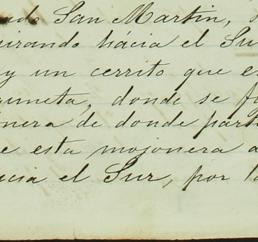 ado San Martin, s
irando hácia el Su
y un cerrito que e
gumeta, donde se f
onera de donde part
e esta mojonera a
cia el Sur, por la